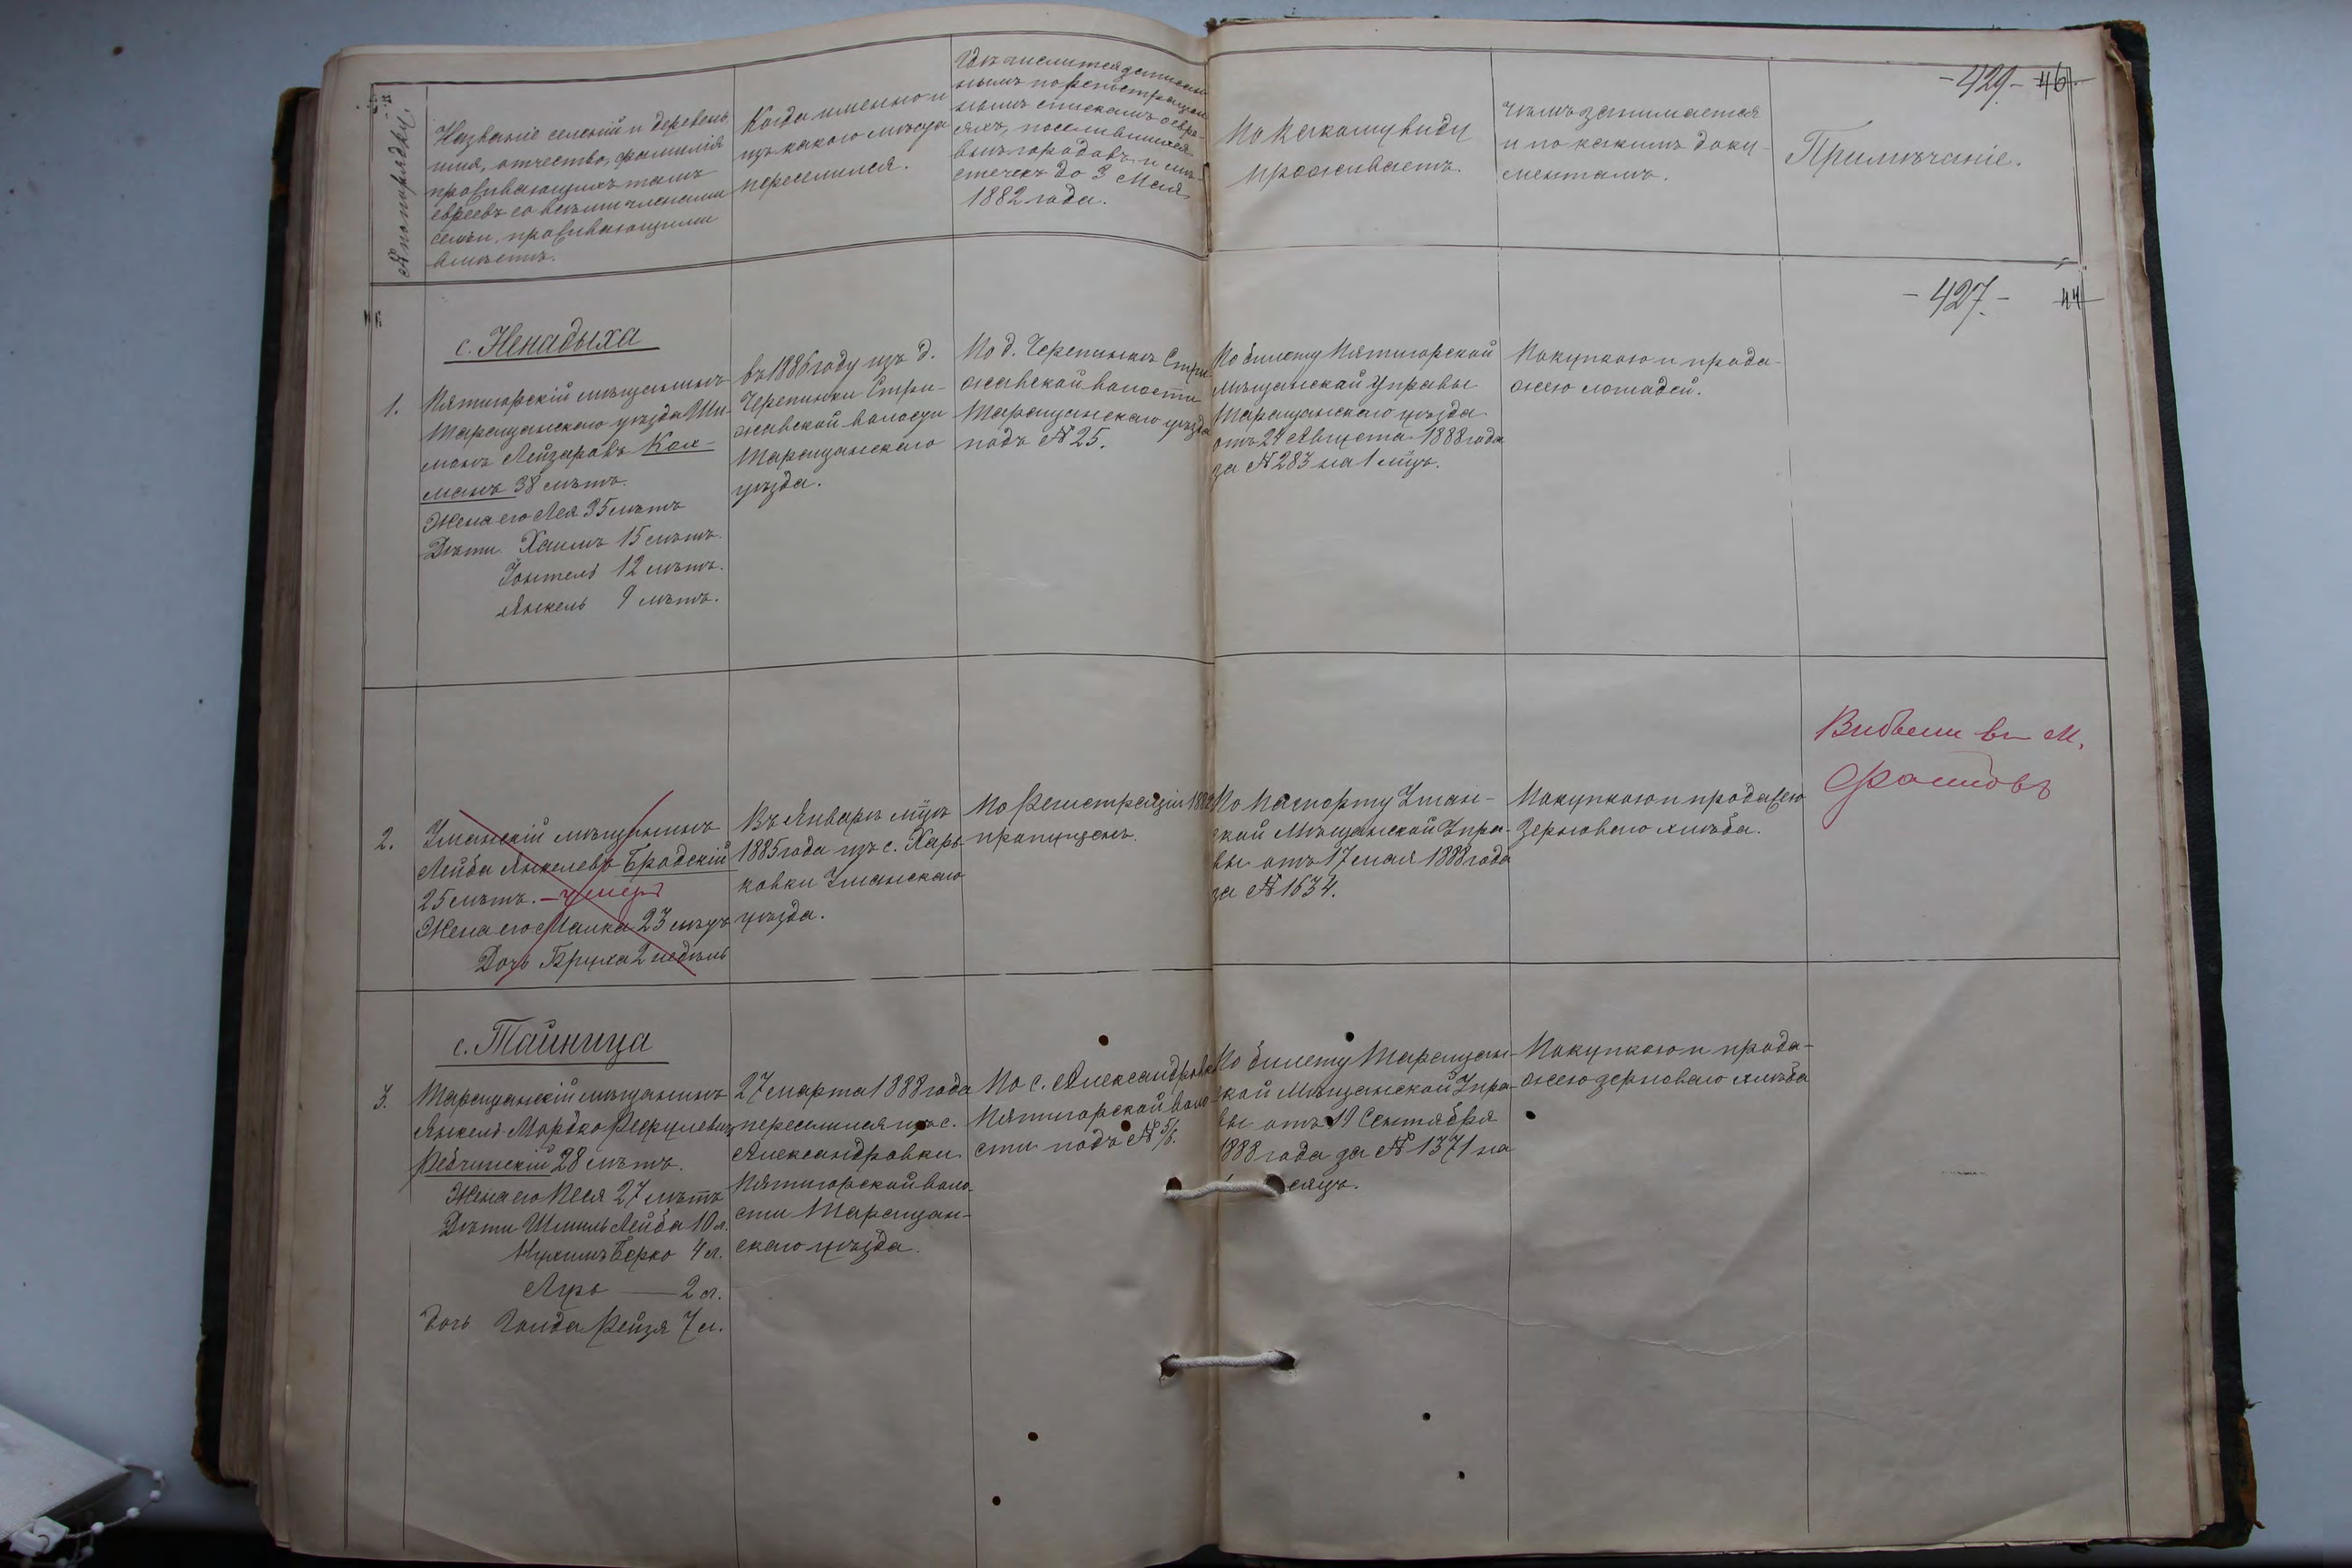 -429.- 46.
№ по порядку
Названіе селеній и деревень
имя, отчество, фамилія
проживающихъ тамъ
евреевъ со всѣми членами
семьи, проживающими
вмѣстѣ.
Когда именно и
изъ какого мѣста
переселился.
Гдѣ числится записан
нымъ по регистрацион
нымъ спискамъ о евре-
яхъ, поселившихся
внѣ городовъ и мѣ-
стечекъ до 3 Мая
1882 года.
По какому виду
проживаетъ.
Чѣмъ занимается
и по какимъ доку-
ментамъ.
Примѣчаніе.
-427.- 44
с. Ненадыха
1.
Пятигорскій мѣщанинъ
Таращанскаго уѣзда Ши-
монъ Лейзеровъ Кол-
манъ 38 лѣтъ.
Жена его Лея 35 лѣтъ
Дѣти Хаимъ 15 лѣтъ.
12 лѣтъ.
Янкель 9 лѣтъ.
въ 1886 году изъ д.
Черепинки Стри-
жавской волости
Таращанскаго
уѣзда.
По д. Черепинкѣ Стри-
жавской волости
Таращанскаго уѣзда
подъ № 25.
По билету Пятигорской
Мѣщанской Управы
Таращанскаго уѣзда
отъ 24 Августа 1888 года
за № 283 на 1 мѣц.
Покупкою и прода-
жею лошадей.
2.
Уманскій мѣщанинъ
Лейба Янкелевъ Бродскій
25 лѣтъ. - умеръ
Жена его Малка 23 лѣтъ
Дочь Бруха 2 недѣль
Въ Январѣ мцѣ
1885 года изъ с. Харь
ковки Уманскаго
уѣзда.
По Регистраціи 1882
пропущенъ.
По Паспорту Уман-
ской Мѣщанской Упра-
вы отъ 17 мая 1888 года
за № 1634.
Покупкою и продажею
зерноваго хлѣба.
в М.
с. Тайница
3.
Таращанскій мѣщанинъ
Янкель Мордко Рефулевичъ
28 лѣтъ.
Жена его Песя 27 лѣтъ
Дѣти Шмиль Лейба 10 л.
Нухимъ Берко 4 л.
— 2 л.
Дочь Голда Рейзя 7 л.
27 марта 1888 года
переселился изъ с.
Александровки
Пятигорской воло-
сти Таращан-
скаго уѣзда.
По с. Александровкѣ
Пятигорской воло-
сти подъ № 5/6.
По билету Таращан-
ской Мѣщанской Упра-
вы отъ 19 Сентября
1888 года за № 1371 на
Покупкою и прода-
жею зерноваго хлѣба